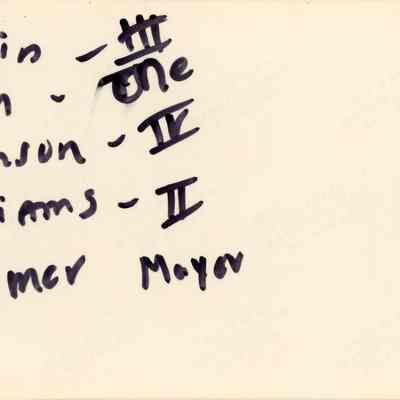 in - III
n - One
nson - IV
iams - II
mer Mayor